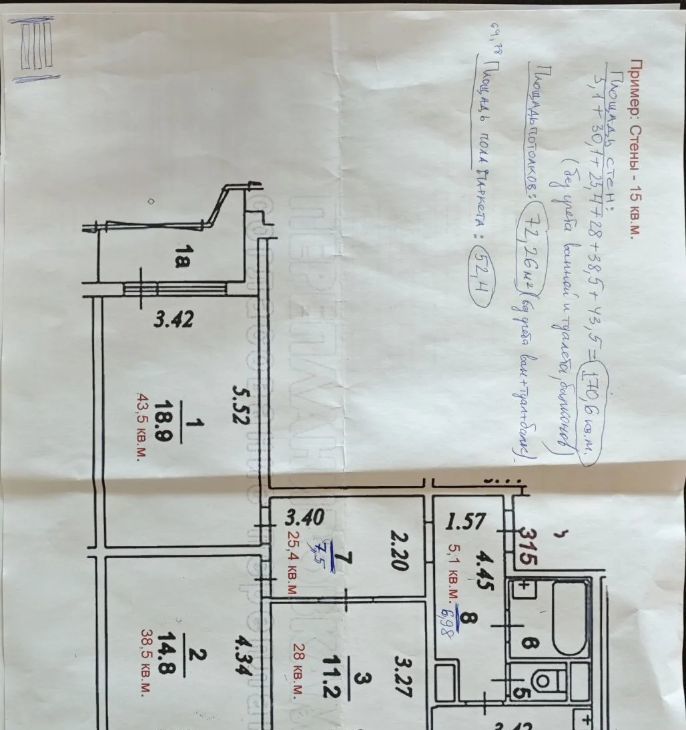 Пример: Стены - 15 кв.м.
Площадь стен:
5,1 + 30,1 + 25,4 + 28 + 38,5 + 43,5 = 170,6 кв.м.
(без учёта ванной и туалета, балконов)
Площадь потолков: 72,26 м²
69,78
Площадь пола паркета: 52,4
1а
3.42
5.52
1
18.9
43,5 кв.м.
3.40
2.20
7
7,5
25,4 кв.м
1.57
4.45
8
6,98
5,1 кв.м.
315
6
5
4.34
2
14.8
38,5 кв.м.
3.27
3
11.2
28 кв.м.
3.42